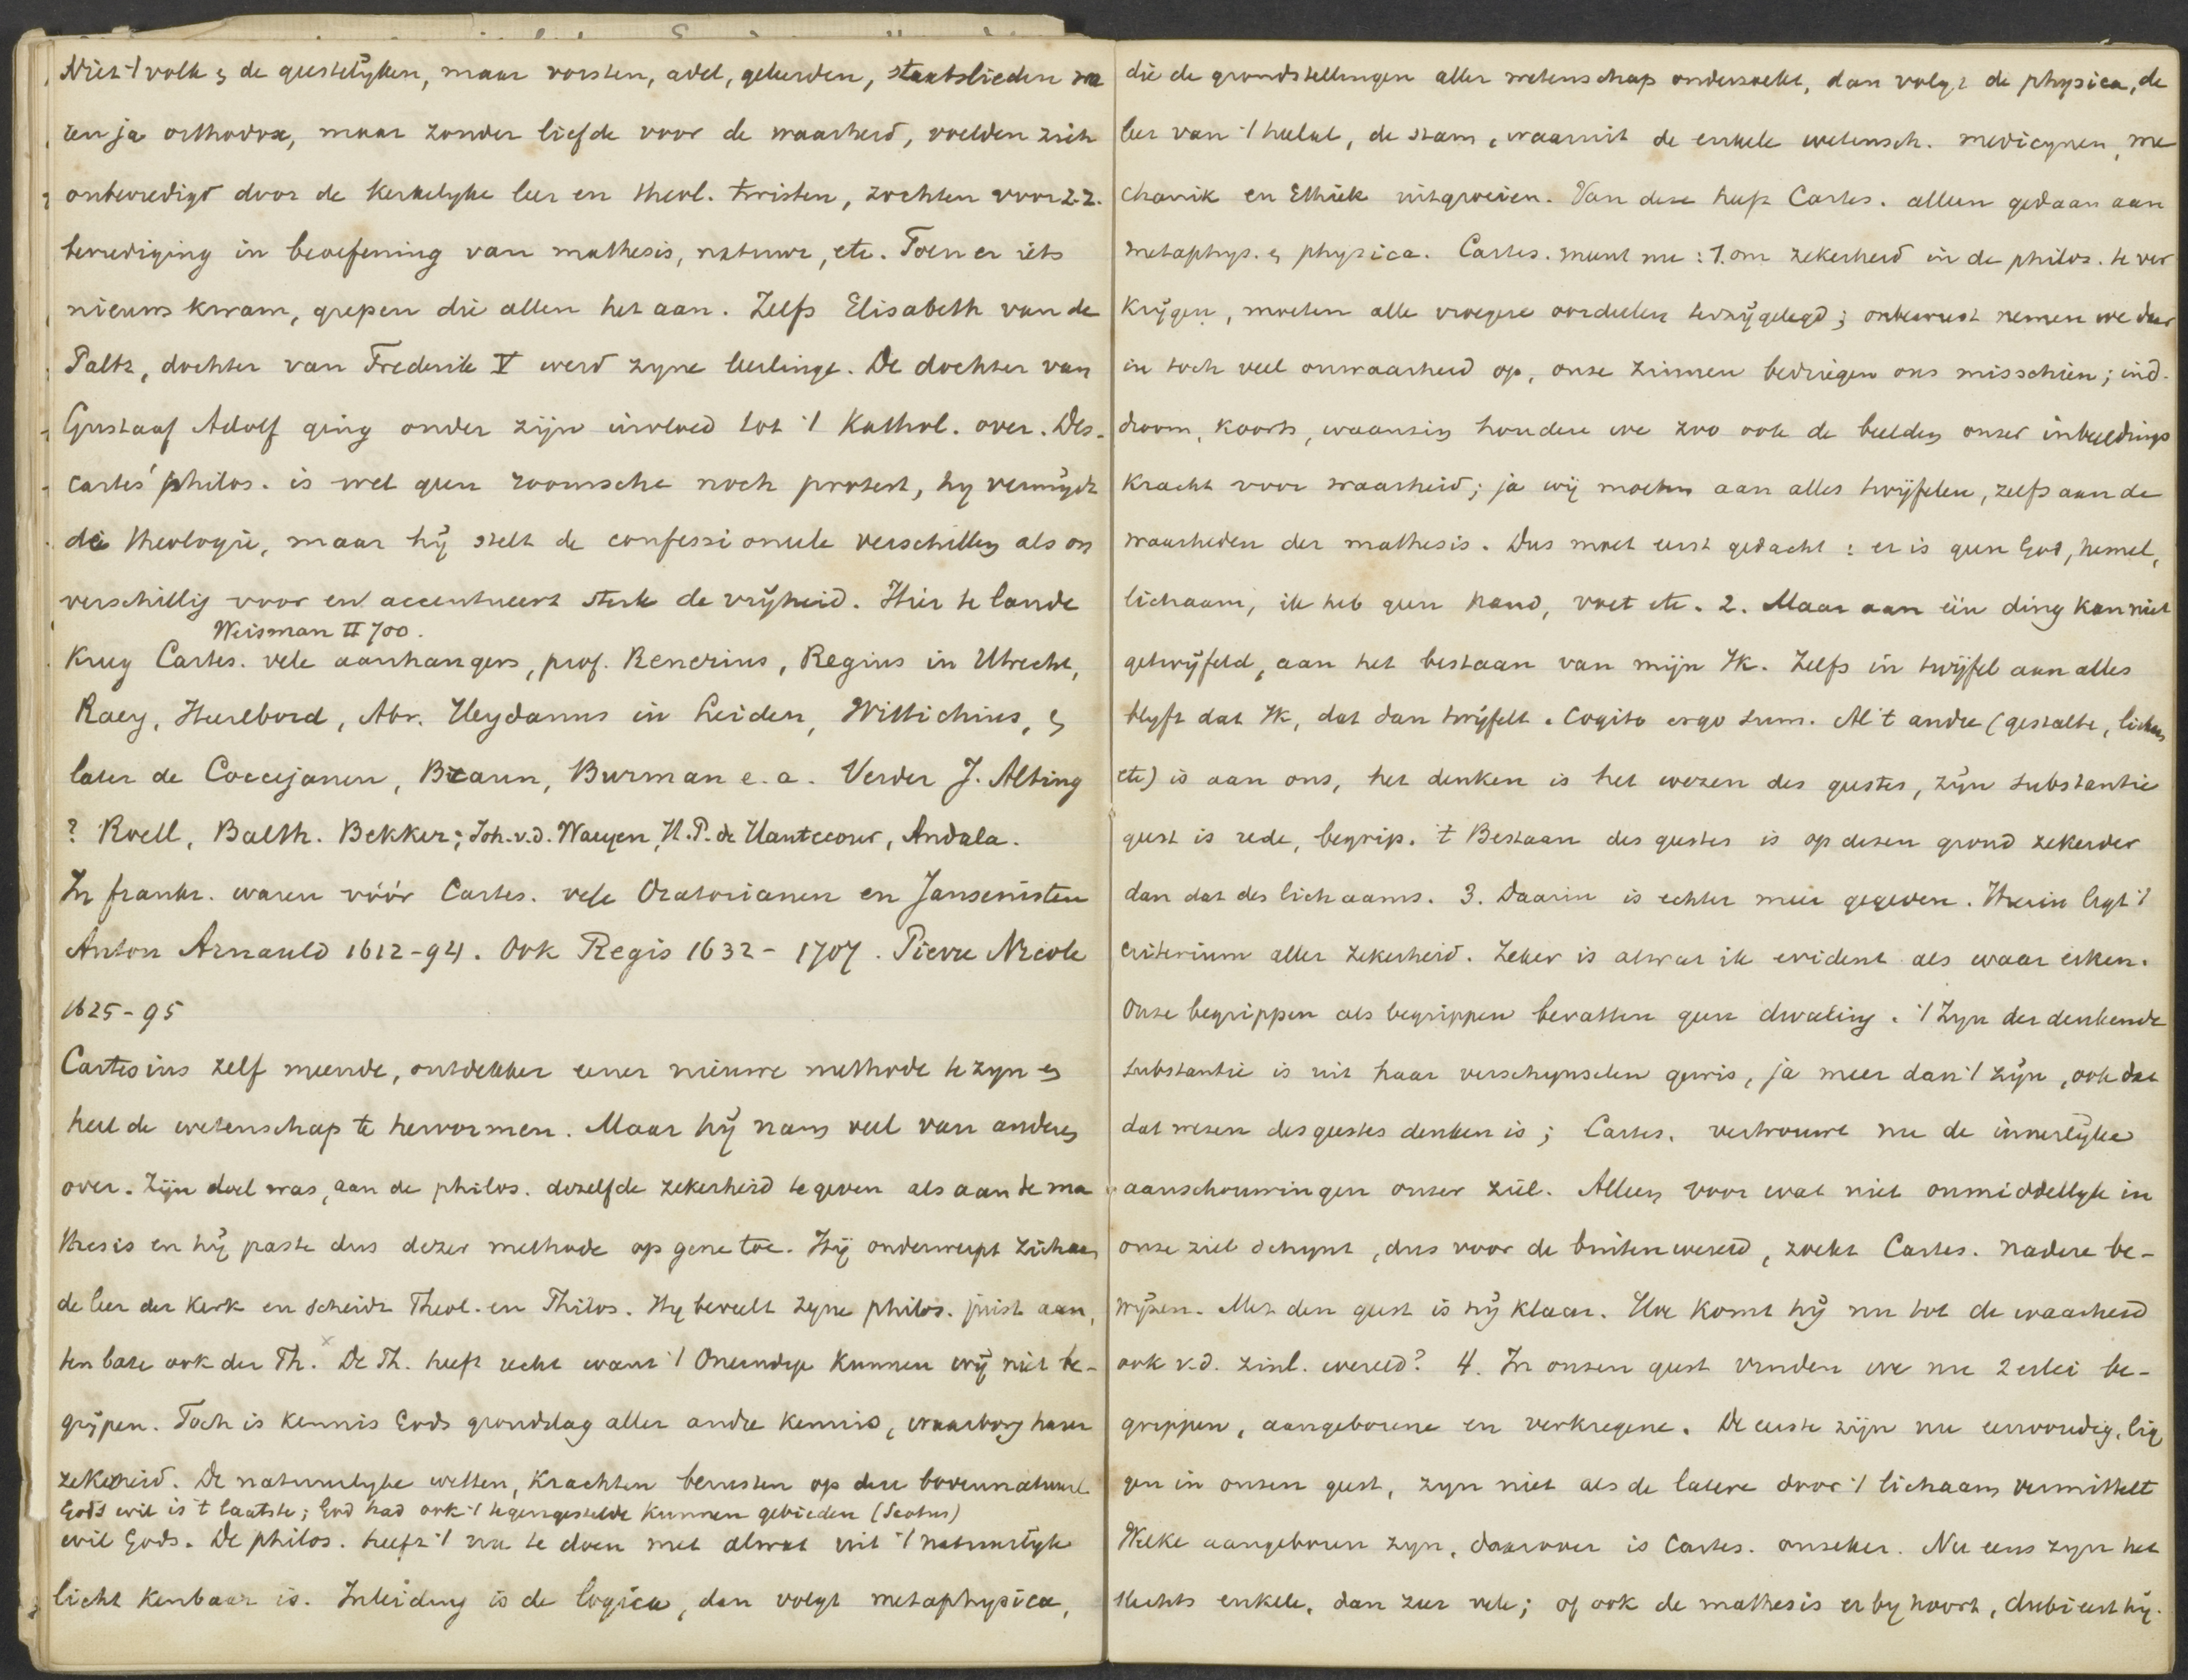 Niet 't volk & de geestelijken, maar vorsten, adel, geleerden, staatslieden wa
ren ja orthodox, maar zonder liefde voor de waarheid, voelden zich
onbevredigd door de kerkelyke leer en theol. twisten, zochten voor z.z.
bevrediging in beoefening van mathesis, natuur, etc. Toen er iets
nieuws kwam, grepen die allen het aan. Zelfs Elisabeth van de
Paltz, dochter van Frederik V werd zyne leerlinge. De dochter van
Gustaaf Adolf ging onder zijn invloed tot 't Kathol. over. Des-
cartes' philos. is wel geen roomsche noch protest, hy vermijdt
de theologie, maar hij stelt de confessioneele verschillen als on
verschillig voor en accentueert sterk de vrijheid. Hier te lande
Weisman II 700.
kreeg Cartes. vele aanhangers, prof. Renerius, Regius in Utrecht,
Raey, Heerebord, Abr. Heydanus in Leiden, Wittichius, &
later de Coccejanen, Braun, Burman e.a. Verder J. Alting
? Roell, Balth. Bekker; Joh. v.d. Waeyen, H.P. de Hautecour, Andala.
In frankr. waren vóór Cartes. vele Oratorianen en Jansenisten
Anton Arnauld 1612-94. Ook Regis 1632-1707. Pierre Nicole
1625-95
Cartesius zelf meende, ontdekker eener nieuwe methode te zyn en
heel de wetenschap te hervormen. Maar hij nam veel van anderen
over. Zijn doel was, aan de philos. dezelfde zekerheid te geven als aan de ma
thesis en hij paste dus dezer methode op gene toe. Hij onderwerpt zich aan
de leer der kerk en scheidt Theol. en Philos. Hy beveelt zyne philos. juist aan,
ten bate ook der Th. De Th. heeft recht want 't Oneindige kunnen wij niet be-
grijpen. Toch is kennis Gods grondslag aller andre kennis, waarborg harer
zekerheid. De natuurlyke wetten, krachten berusten op den bovennatuurl.
Gods wil is 't laatste; God had ook 't tegengestelde kunnen gebieden (Scotus)
wil Gods. De philos. heeft 't nu te doen met alwat uit 't natuurlijk
licht kenbaar is. Inleiding is de logica, dan volgt metaphysica,
die de grondstellingen aller wetenschap onderzoekt, dan volgt de physica, de
leer van 't heelal, de stam, waaruit de enkele wetensch. medicynen, me
chanik en Ethiek uitgroeien. Van deze heeft Cartes. alleen gedaan aan
metaphys. & physica. Cartes. meent nu: 1. om zekerheid in de philos. te ver
krijgen, moeten alle vroegere oordeelen terzijgelegd; onbewust nemen we daar
in toch veel onwaarheid op, onze zinnen bedriegen ons misschien; ind.
droom, koorts, waanzin houden we zoo ook de beelden onser inbeeldings
kracht voor waarheid; ja wij moeten aan alles twijfelen, zelfs aan de
waarheden der mathesis. Dus moet eerst gedacht: er is geen God, hemel,
lichaam, ik heb geen hand, voet etc. 2. Maar aan één ding kan niet
getwijfeld, aan het bestaan van mijn Ik. Zelfs in twijfel aan alles
blyft dat Ik, dat dan twijfelt. Cogito ergo sum. Al 't andre (gestalte, lichaam
etc) is aan ons, het denken is het wezen des geestes, zijn substantie
geest is rede, begrip. 't Bestaan des geestes is op dezen grond zekerder
dan dat des lichaams. 3. Daarin is echter meer gegeven. Hierin ligt 't
criterium aller zekerheid. Zeker is alwat ik evident als waar erken.
Onze begrippen als begrippen bevatten geen dwaling. 't Zyn der denkende
substantie is uit haar verschynselen gewis, ja meer dan 't zijn, ook dat
dat wezen des geestes denken is; Cartes. vertrouwt nu de innerlijke
aanschouwingen onzer ziel. Alleen voor wat niet onmiddellyk in
onze ziel schynt, dus voor de buitenwereld, zoekt Cartes. nadere be-
wijzen. Met den geest is hij klaar. Hoe komt hij nu tot de waarheid
ook v.d. zinl. wereld? 4. In onzen geest vinden we nu 2erlei be-
grippen, aangeborene en verkregene. De eerste zijn nu eenvoudig, lig
gen in onzen geest, zyn niet als de latere door 't lichaam vermittelt
Welke aangeboren zyn, daarover is Cartes. onzeker. Nu eens zyn het
slechts enkele, dan zeer vele; of ook de mathesis erby hoort, dubieert hij.